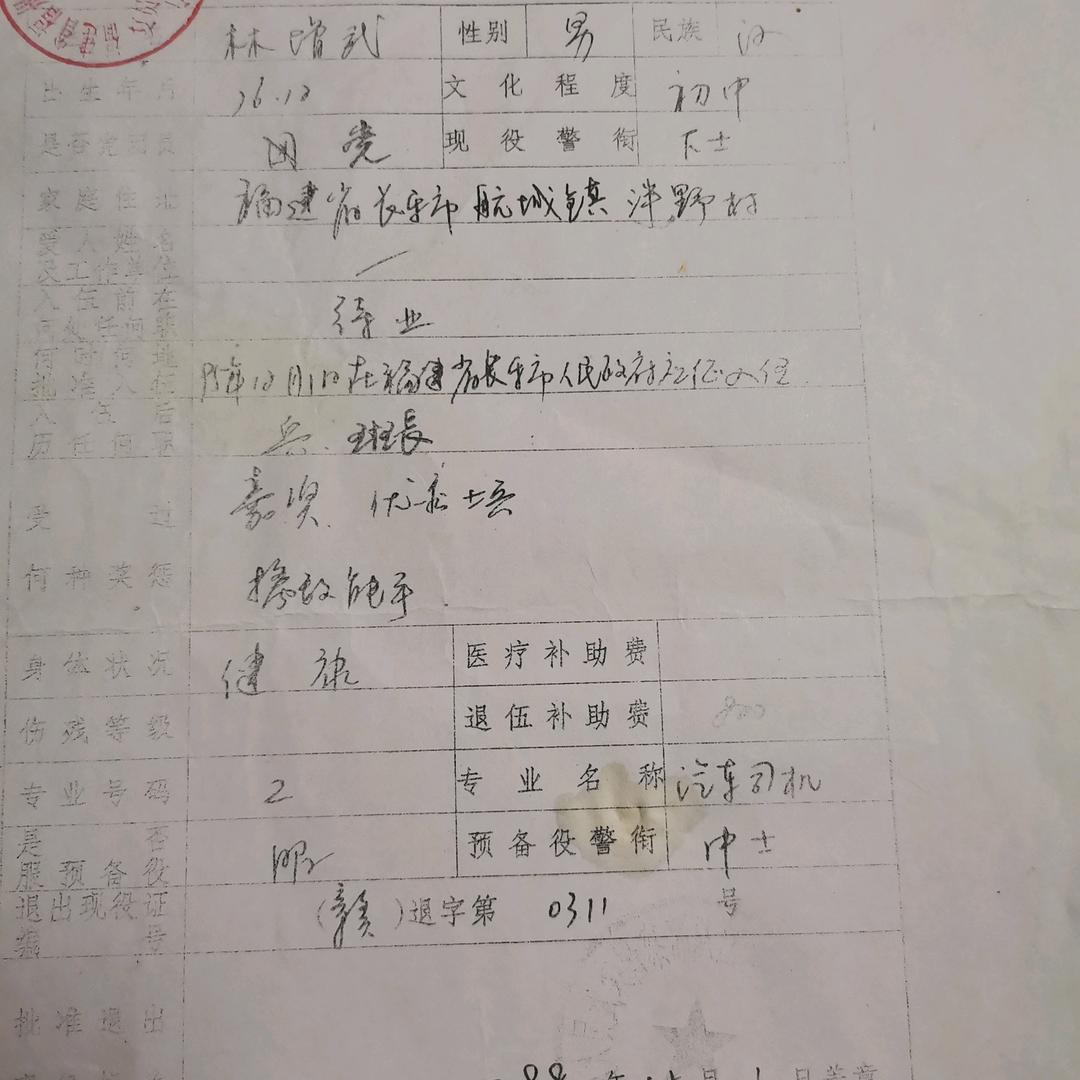 林增武 性别 男 民族 汉
出生年月 76.12 文化程度 初中
是否党团员 团 党 现役警衔 下士
家庭住址 福建省长乐市航城镇洋野村
爱人姓名
及工作单位 一
入伍前在
何处任何职 待业
何时何地
批准入伍 95年12月1日在福建省长乐市人民政府应征入伍.
入伍后
历任何职 兵.班长
受过 嘉奖. 优秀士兵
何种奖惩
身体状况 健康 医疗补助费
伤残等级 退伍补助费 800
专业号码 2 专业名称 汽车司机
是否
服预备役 服 预备役警衔 中士
退出现役证
编号 (赣)退字第 0311 号
批准退出
98年12月1日盖章